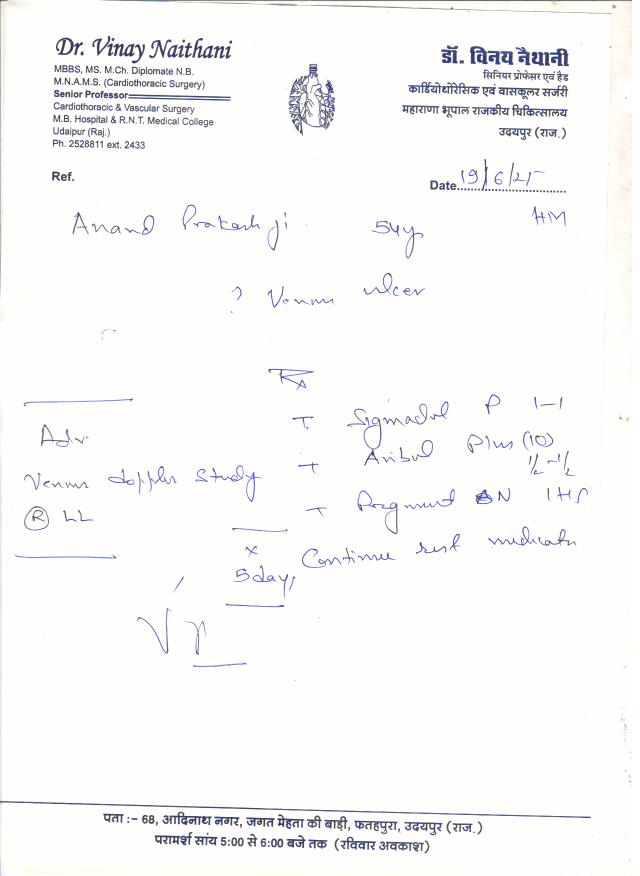 Dr. Vinay Naithani
MBBS, MS. M.Ch. Diplomate N.B.
M.N.A.M.S. (Cardiothoracic Surgery)
Senior Professor
Cardiothoracic & Vascular Surgery
M.B. Hospital & R.N.T. Medical College
Udaipur (Raj.)
Ph. 2528811 ext. 2433
डॉ. विनय नैथानी
सिनियर प्रोफेसर एवं हैड
कार्डियोथोरेसिक एवं वासकूलर सर्जरी
महाराणा भूपाल राजकीय चिकित्सालय
उदयपुर (राज.)
Ref.
Date 19/6/25
HM
Anand Prakash ji 54y
? Venous ulcer
Rx
T. P 1-1
T Plus (10)
1/2-1/2
T N 1HS
Continue rest
Adv
Venous doppler study
R LL
x
5 days
पता :- 68, आदिनाथ नगर, जगत मेहता की बाड़ी, फतहपुरा, उदयपुर (राज.)
परामर्श सांय 5:00 से 6:00 बजे तक (रविवार अवकाश)